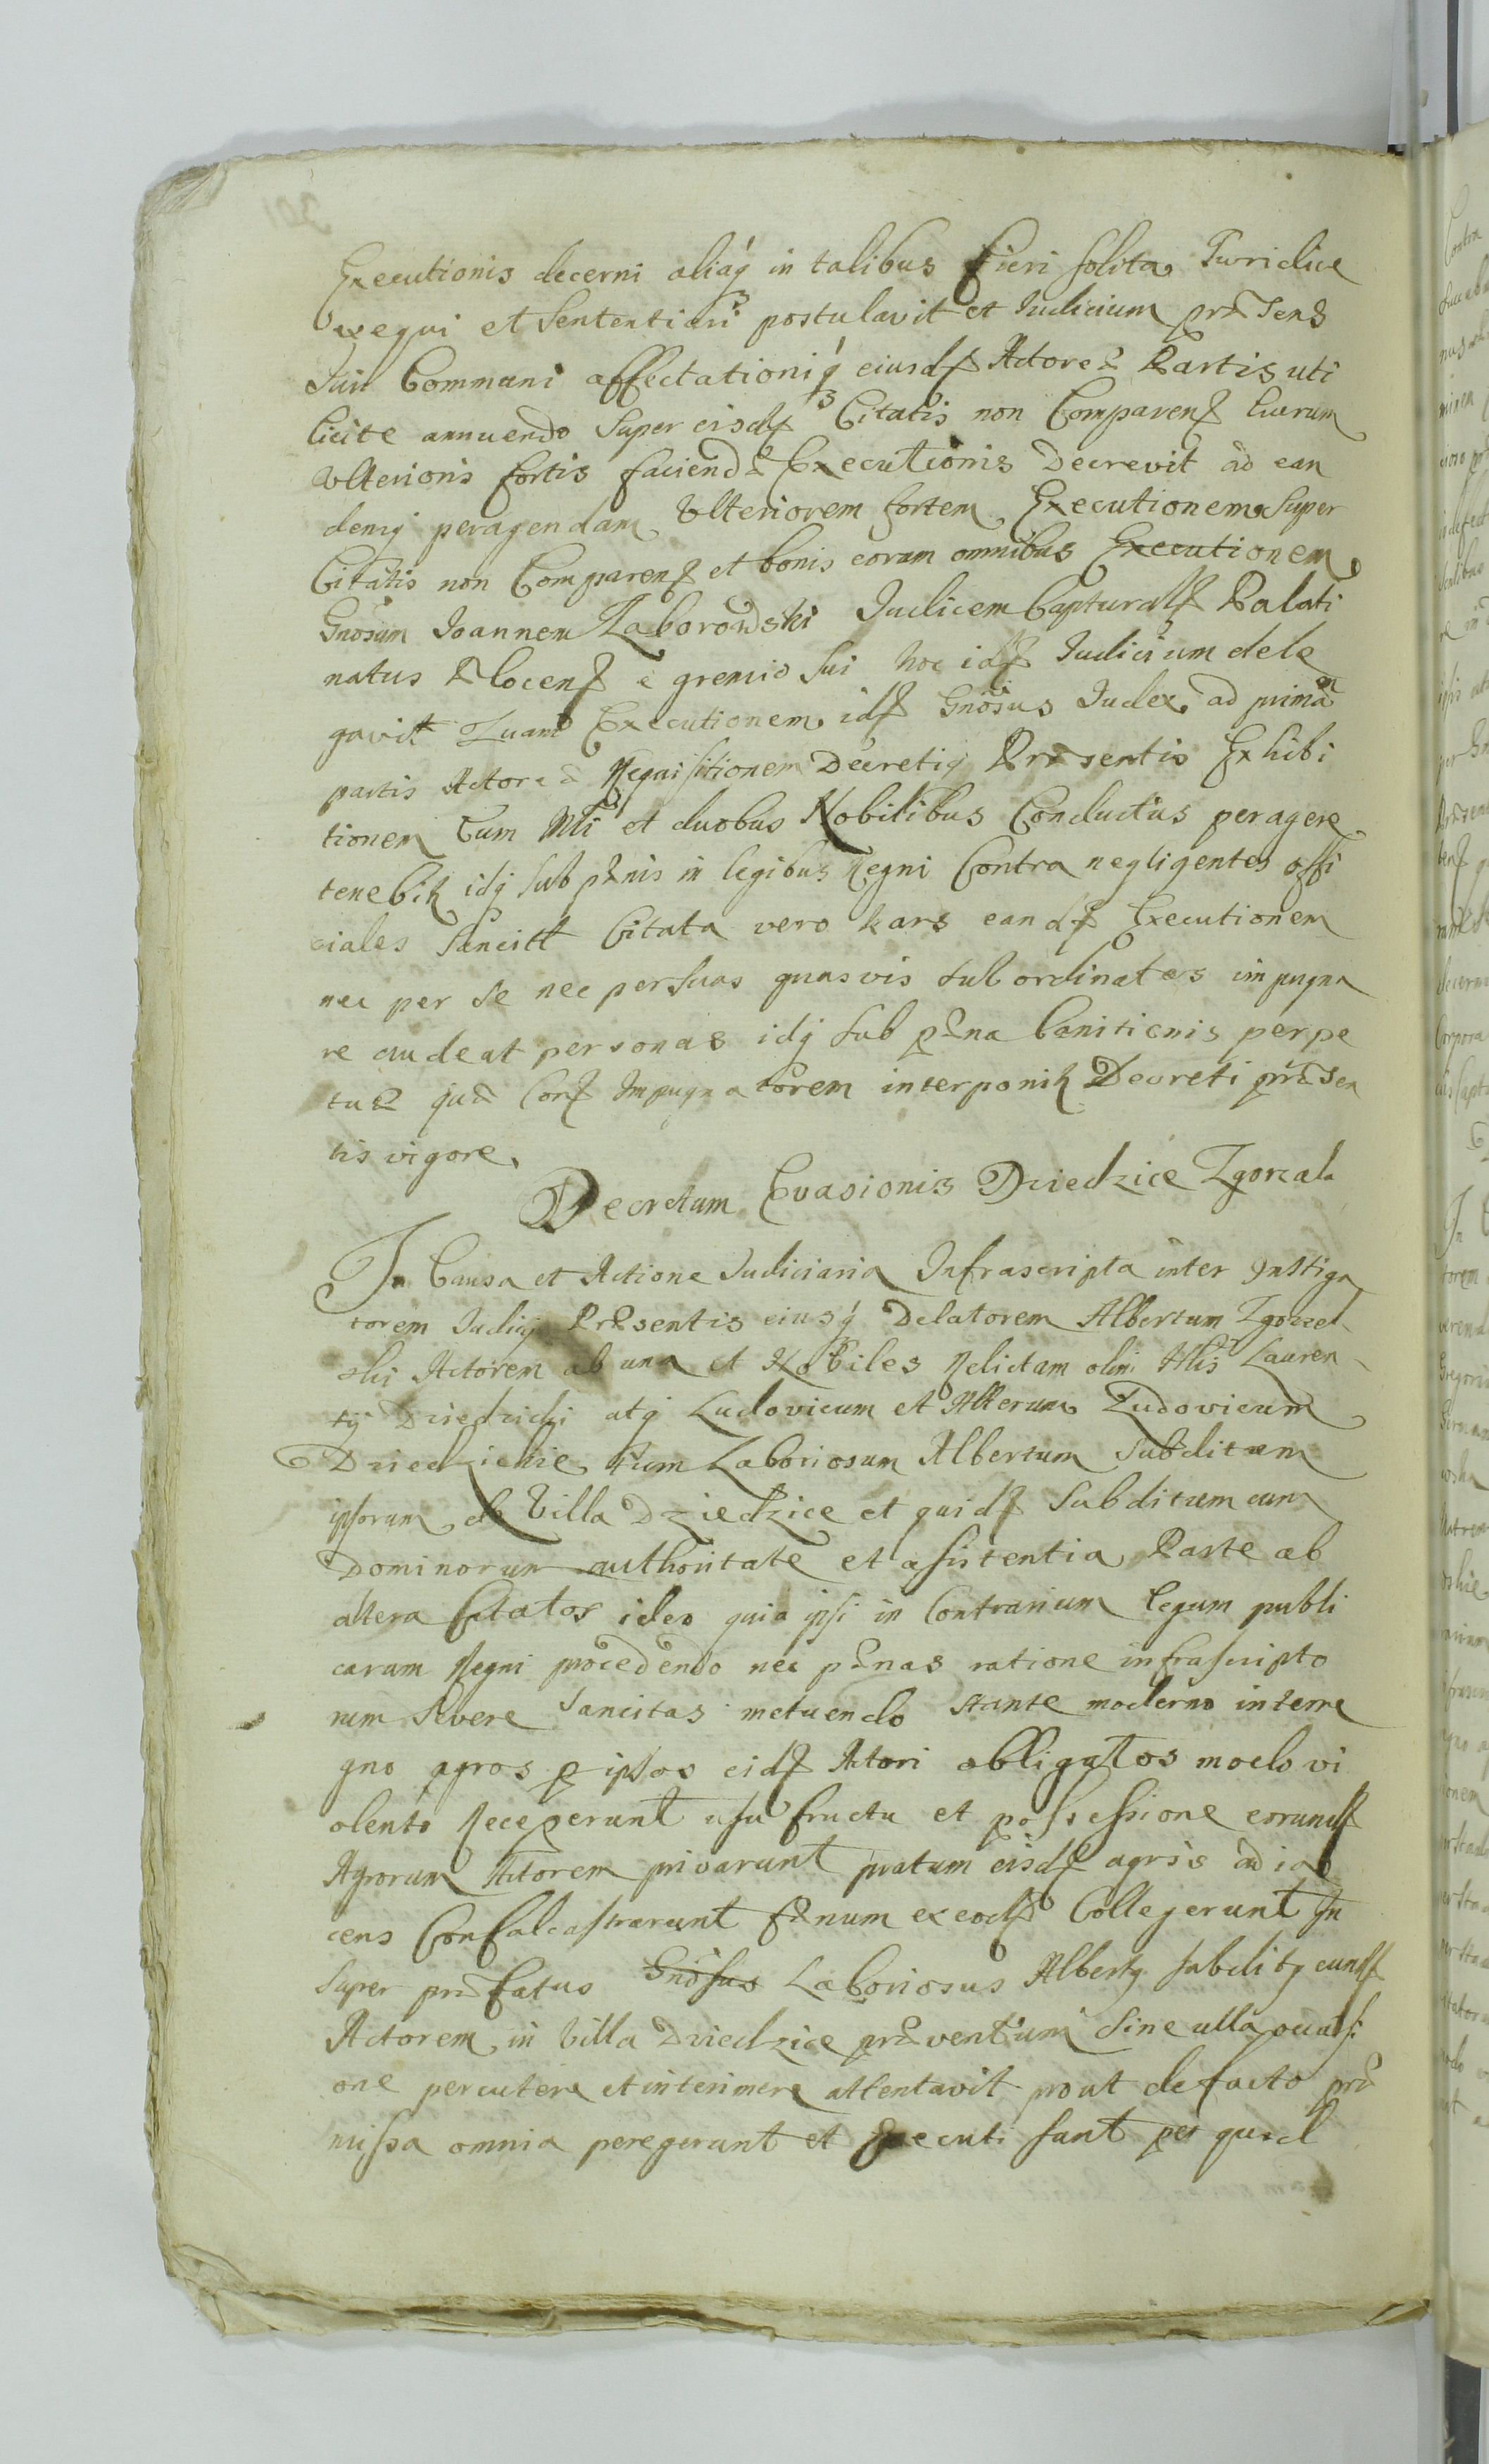 Executionis decerni aliaq in talibus fieri solita Juridice
exequi et Sententiari postulavit et Judicium præsens
Juri Communi affectationiq eiusd Actoreæ Partis uti
licite annuendo Super eisd Citatis non Comparen lucrum
Ulterioris fortis faciendæ Executionis Decrevit ad ean
demq peragendam Ulteriorem fortem Executionem Super
Citatis non Comparen et bonis eorum omnibus Executionem
Gnosum Joannem Zaborowski Judicem Captural Palati
natus Plocen e gremio Sui hoc id Judicium dele
gavit Quam Executionem id Gnosus Judex ad primam
partis Actoreæ Requisitionem Decretiq Præsentis Exhibi
tionem Cum Mli et duobus Nobilibus Conductus peragere
tenebit idq Sub pænis in legibus Regni Contra negligentes offi
ciales Sancitt Citata vero Pars eand Executionem
nec per se nec per suas quasvis subordinatas impugna
re audeat personas idq sub pæna banitionis perpe
tuæ quæ Con Impugnatorem interponit Decreti præsen
tis vigore
Decretum Evasionis Dziedzice Zgorzal
In Causa et Actione Judiciaria Infrascripta inter Instiga
torem Judicij Præsentis eiusq Delatorem Albertum Zgorzel
ski Actorem ab una et Nobiles Relictam olim Nlis Lauren
tij Dziedzicki atq Ludovicum et Alterum Ludovicum
Dziedzickie tum Laboriosum Albertum Subditum
ipsorum de Villa Dziedzice et quid Subditum cum
Dominorum authoritate et asistentia Parte ab
altera Citatos ideo quia ipsi in Contrarium legum publi
carum Regni procedendo nec pænas ratione infrascripto
rum Severe Sancitas metuendo stante moderno interre
gno agros p ipsos eid Actori obligatos modo vi
olento receperunt usu fructu et possessione eorund
Agrorum Actorem privarunt pratum eisd agris adia
cens Confalcastrarunt fænum ex eod Collegerunt In
super præfatus Gnosus Laboriosus Albertq subditq eund
Actorem in Villa Dziedzice præventum sine ulla occasi
one percutere et interimere attentavit prout de facto præ
missa omnia peregerunt et Executi sunt per quod